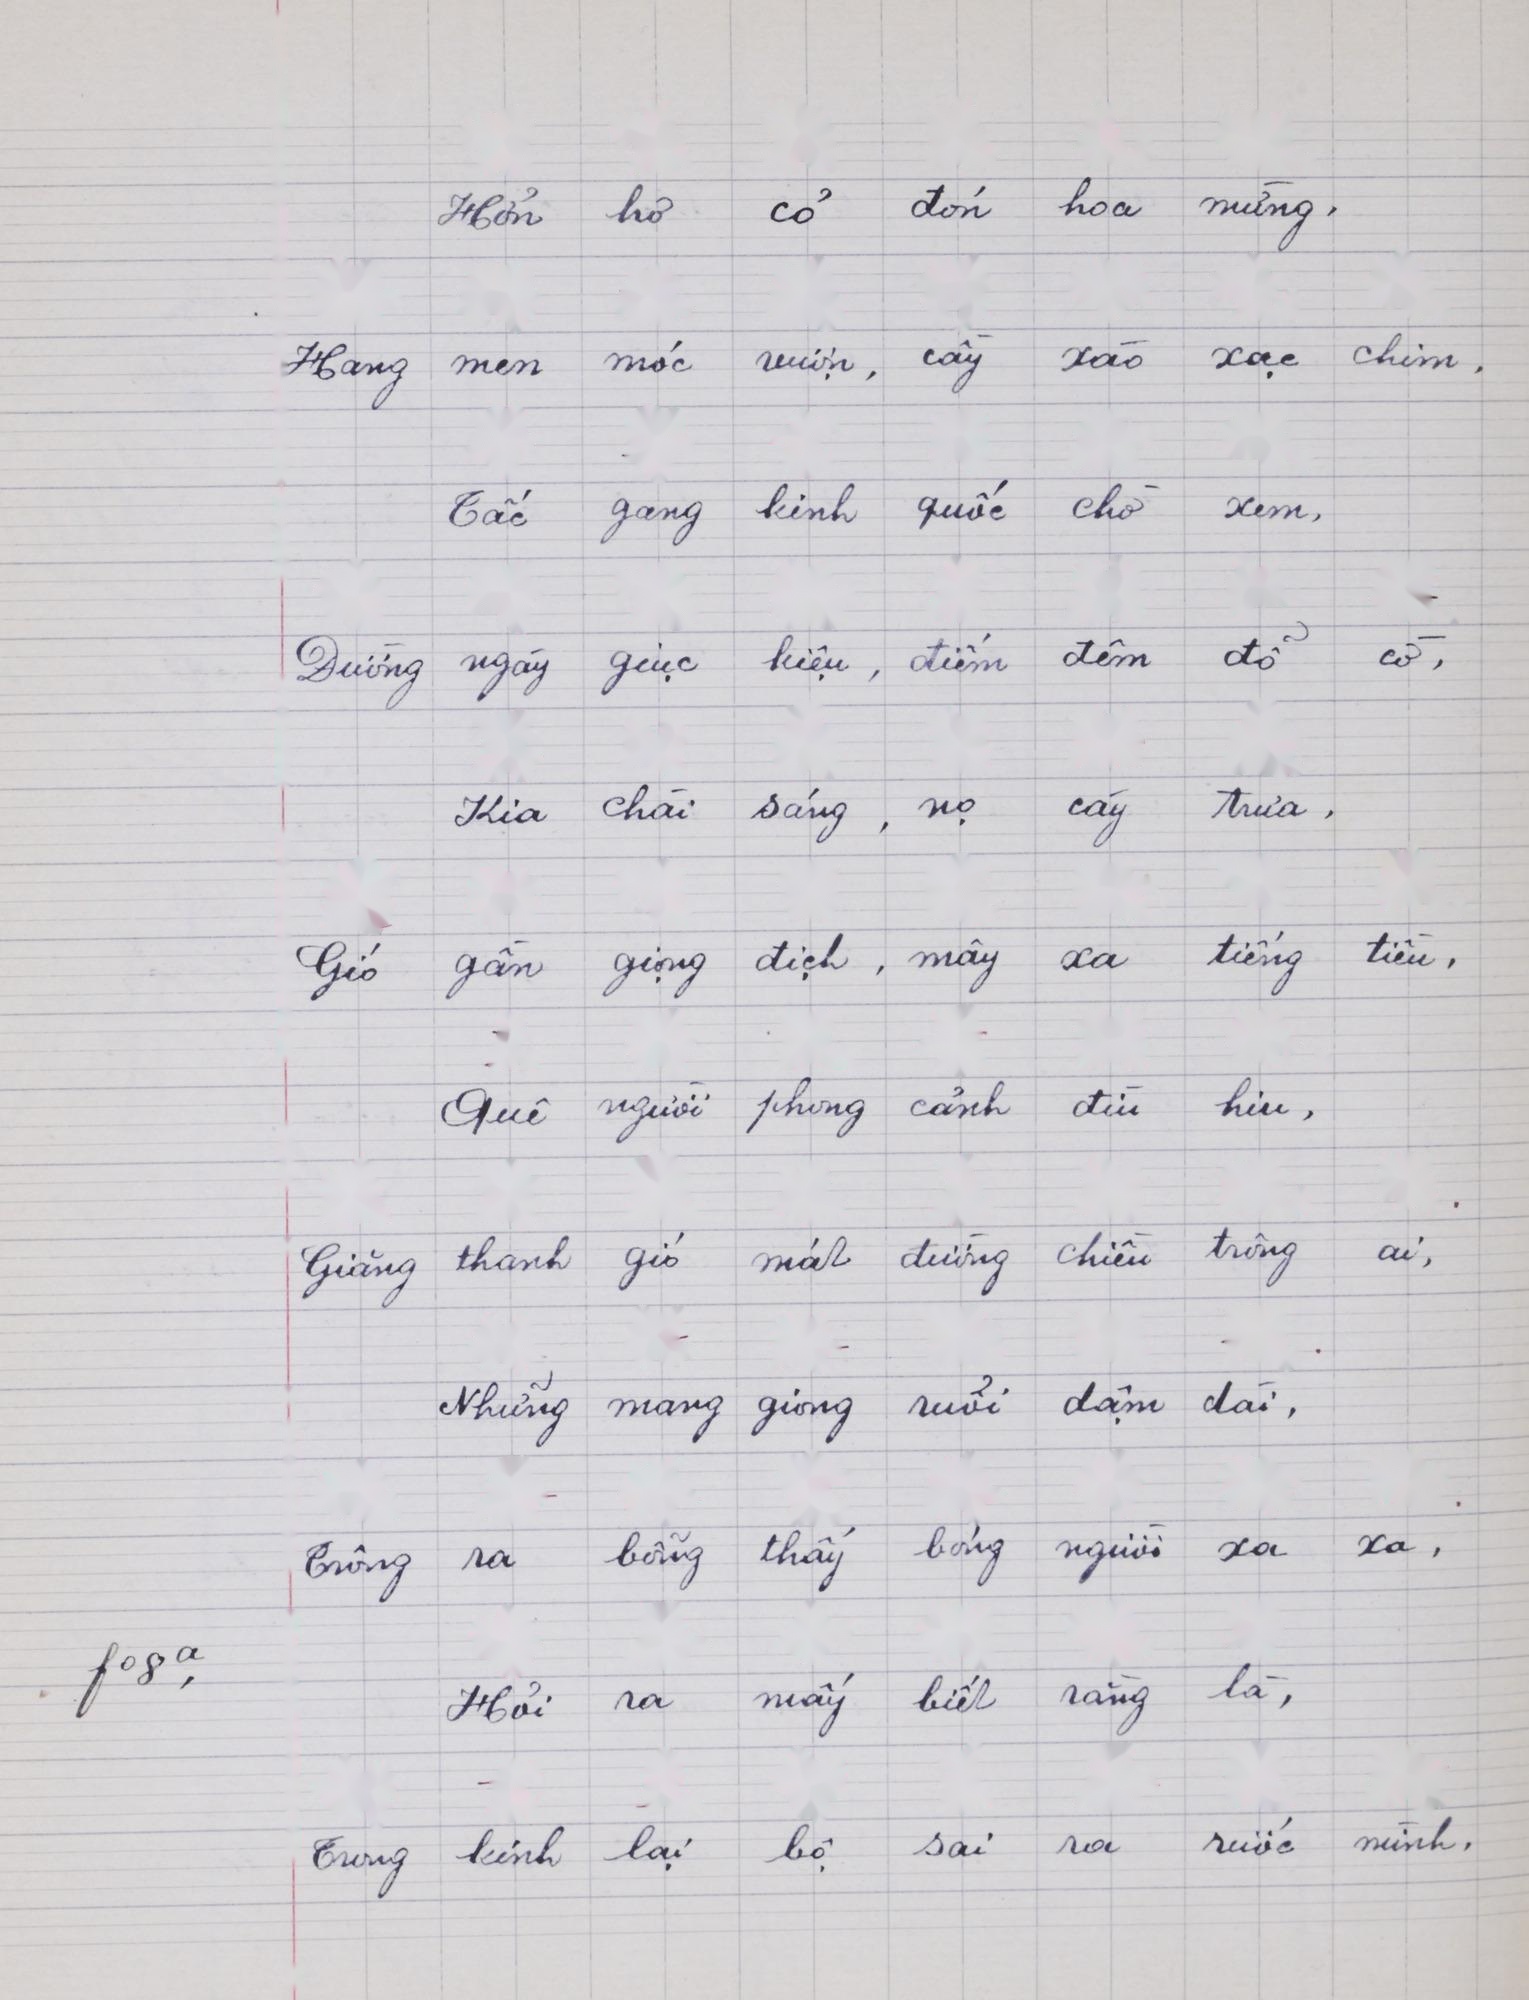 Hớn hở cỏ đón hoa mừng,
Hang men móc vượn, cây xào xạc chim,
Tấc gang kinh quốc chờ xem,
Đường ngày giục kiệu, điếm đêm đỗ cờ,
Kia chài sáng, nọ cày trưa,
Gió gần giọng địch, mây xa tiếng tiều,
Quê người phong cảnh đìu hiu,
Giăng thanh gió mát đường chiều trông ai,
Những mang giong ruổi dặm dài,
Trông ra bỗng thấy bóng người xa xa,
fº 8ª,
Hỏi ra mấy biết rằng là,
Trong kinh lại bộ sai ra rước mình,